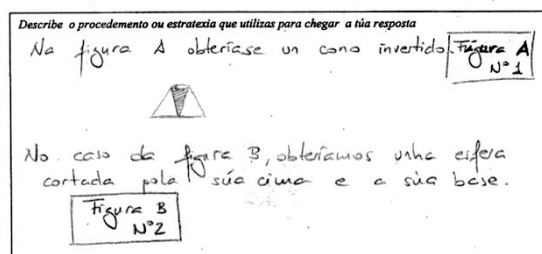 Describe o procedemento ou estratexia que utilizas para chegar a túa resposta
Na figura A obteríase un cono invertido. Figura A
Nº 1
No caso da figura B, obteríamos unha esfera
cortada pola súa cima e a súa base.
Figura B
Nº2